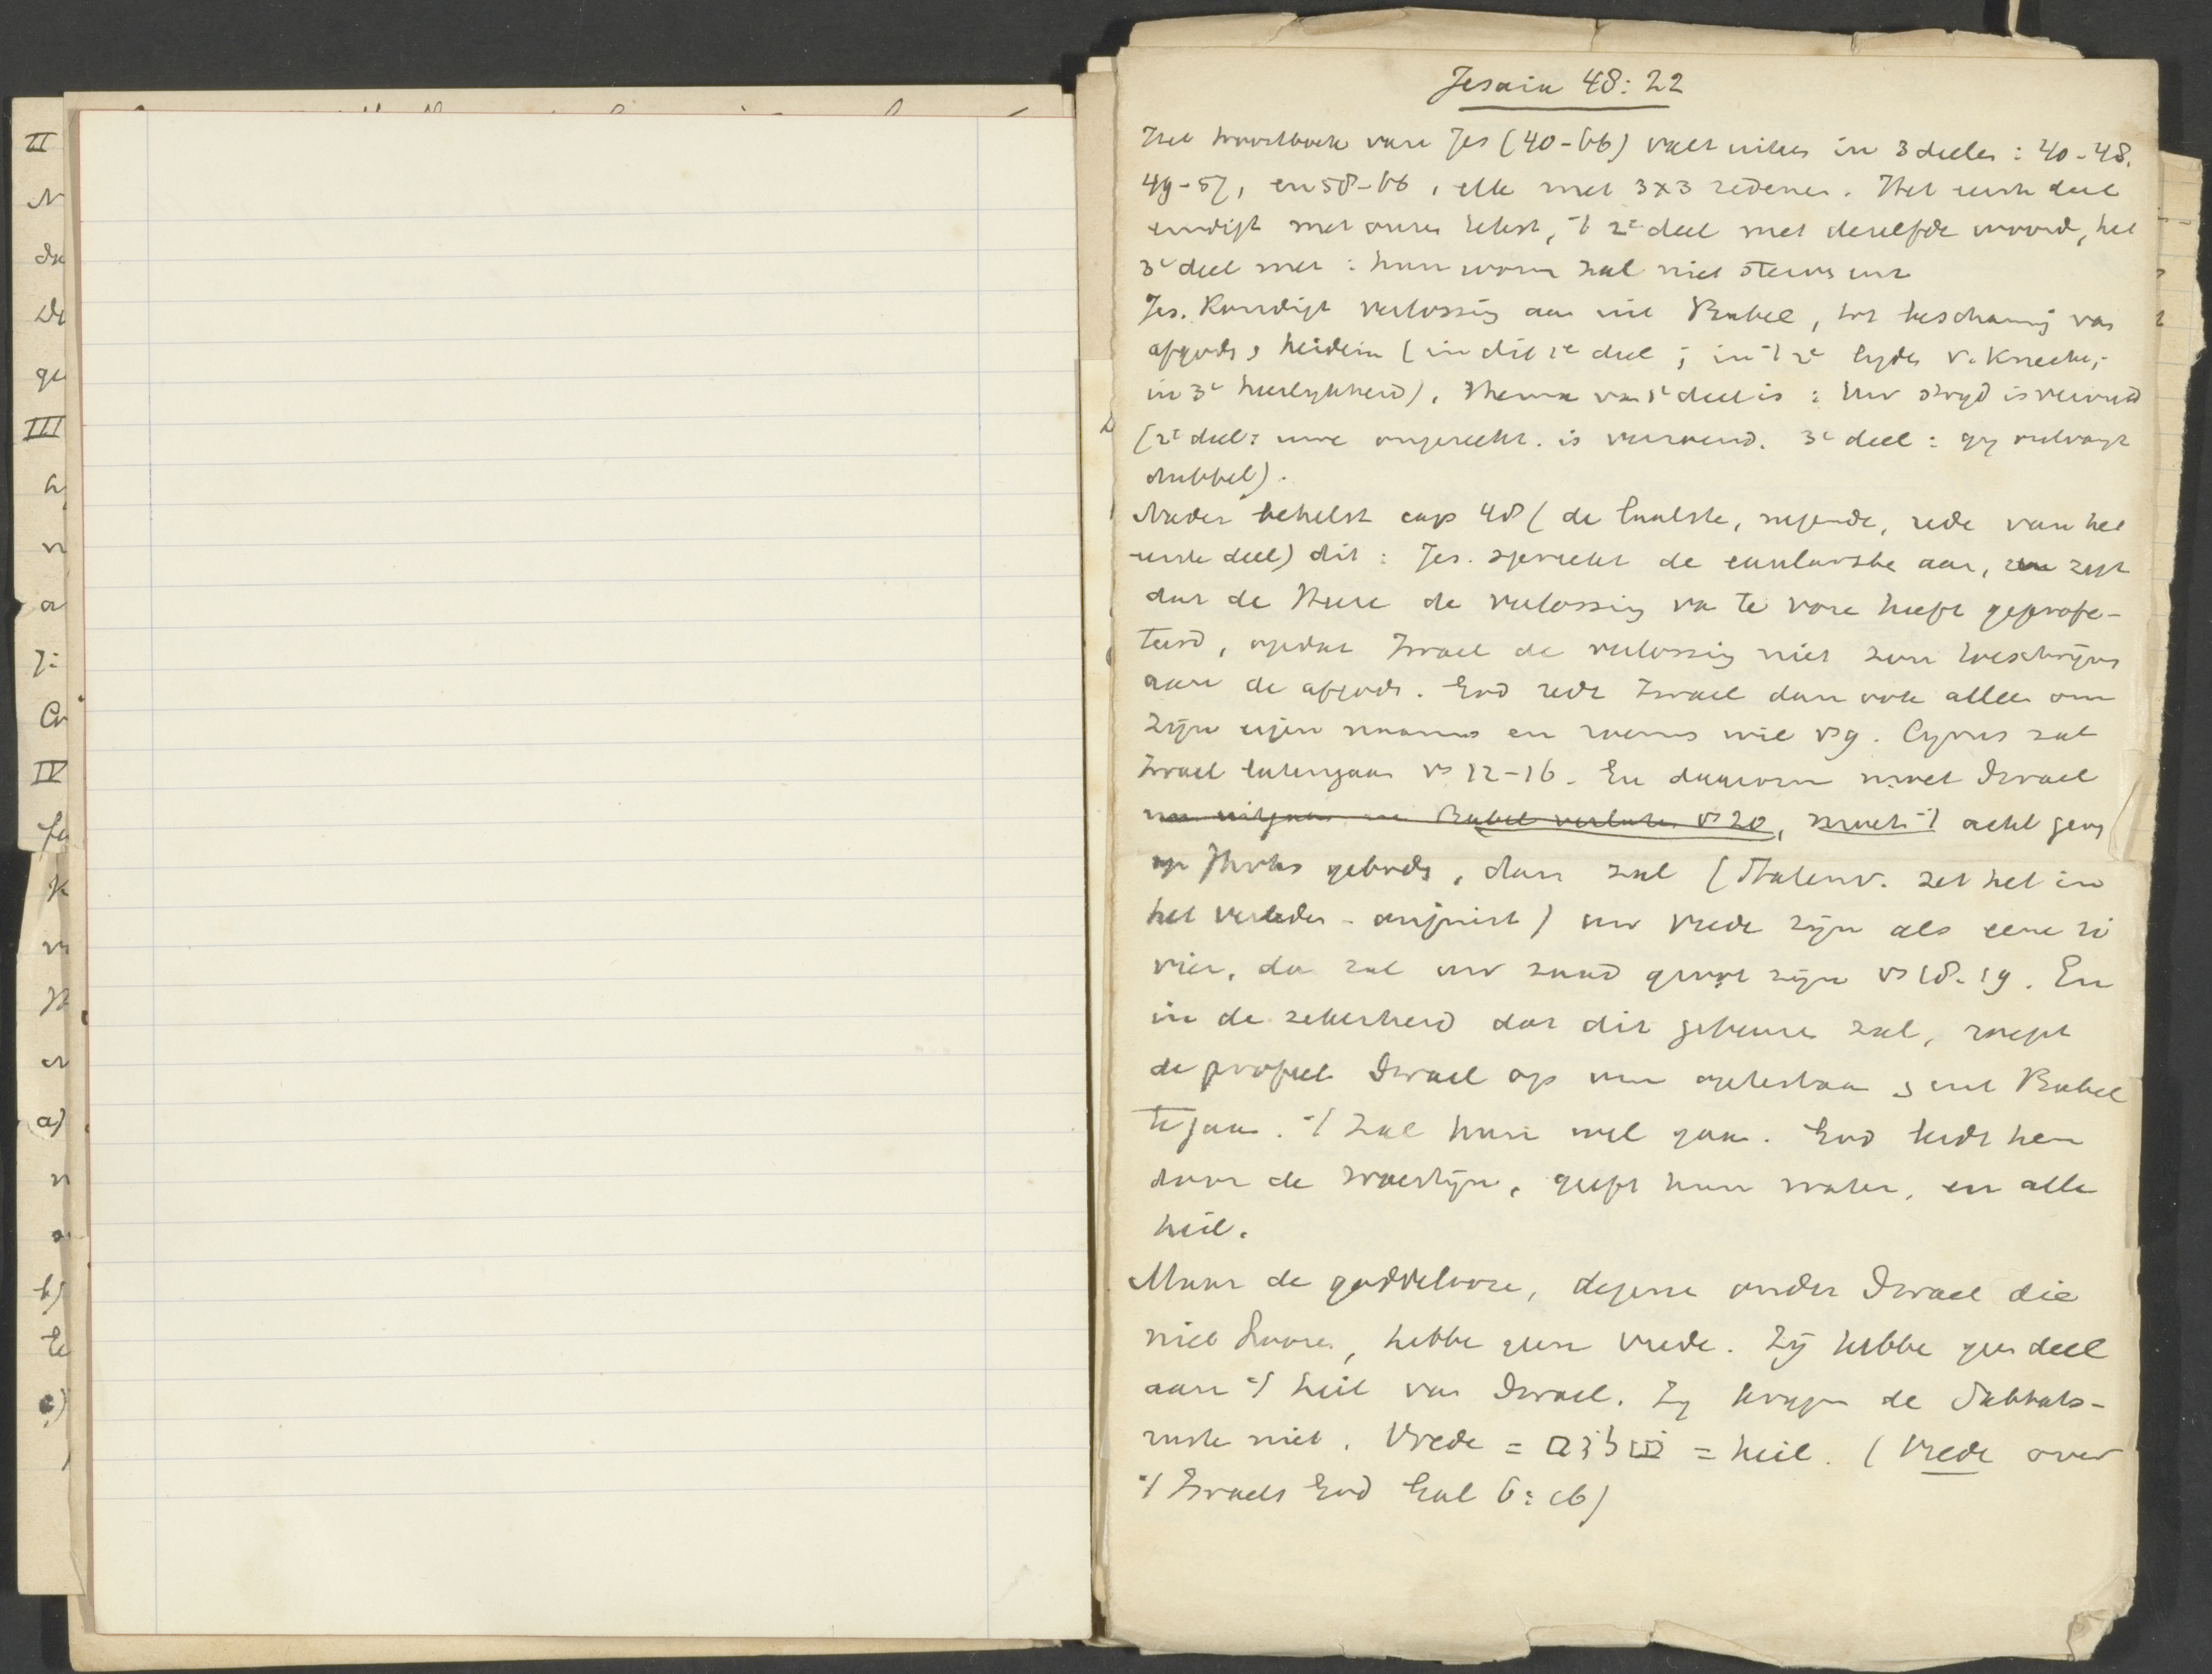 II
N
da
De
ge
III
a
n
a
J:
Cr
IV
fa
K
vr
H
er
a)
n
b)
te
c)
Jesaia 48:22
Het troostboek van Jes (40-66) valt uiteen in 3 deelen: 40-48,
49-57, en 58-66, elk met 3x3 redenen. Het eerste deel
eindigt met onzen tekst, 't 2e deel met dezelfde woord, het
3e deel met: hun worm zal niet sterven enz
Jes. Kondigt verlossing aan uit Babel, tot beschaming van
afgoden & heiden (in dit 1e deel; in 't 2e lyden v. Knecht;
in 3e heerlykheid). Thema van 1e deel is: uw stryd is vervuld
(2e deel: uwe ongerecht. is verzoend. 3e deel: gy ontvangt
dubbel).
Nader behelst cap 48 (de laatste, negende, rede van het
eerste deel) dit: Jes. spreekt de aan, zegt
dat de Heere de verlossing van te voren heeft geprofe-
teerd, opdat Israel de verlossing niet zou toeschrijven
aan de afgoden. God redt Israel dan ook alleen om
Zijn eigen naams en roems wil vs 9. Cyrus zal
Israel laten gaan vs 12-16. En daarom moet Israel
nu uitgaan en Babel verlaten vs 20, moet 't acht geven
op Gods geboden, dan zal (Statenv. zet het in
het verleden - onjuist) uw vrede zijn als eene ri
vier, dan zal uw zaad groot zijn vs 18-19. En
in de zekerheid dat dit gebeuren zal, roept
de profeet Israel op om optestaan & uit Babel
te gaan. 't Zal hun wel gaan. God leidt hen
door de woestijn, geeft hun water, en alle
heil.
Maar de goddeloozen, degenen onder Israel die
niet hooren, hebben geen vrede. Zij hebben geen deel
aan 't heil van Israel. Zy krygen de Sabbats-
ruste niet. Vrede = שלום = heil. (Vrede over
't Israels God Gal 6:16)